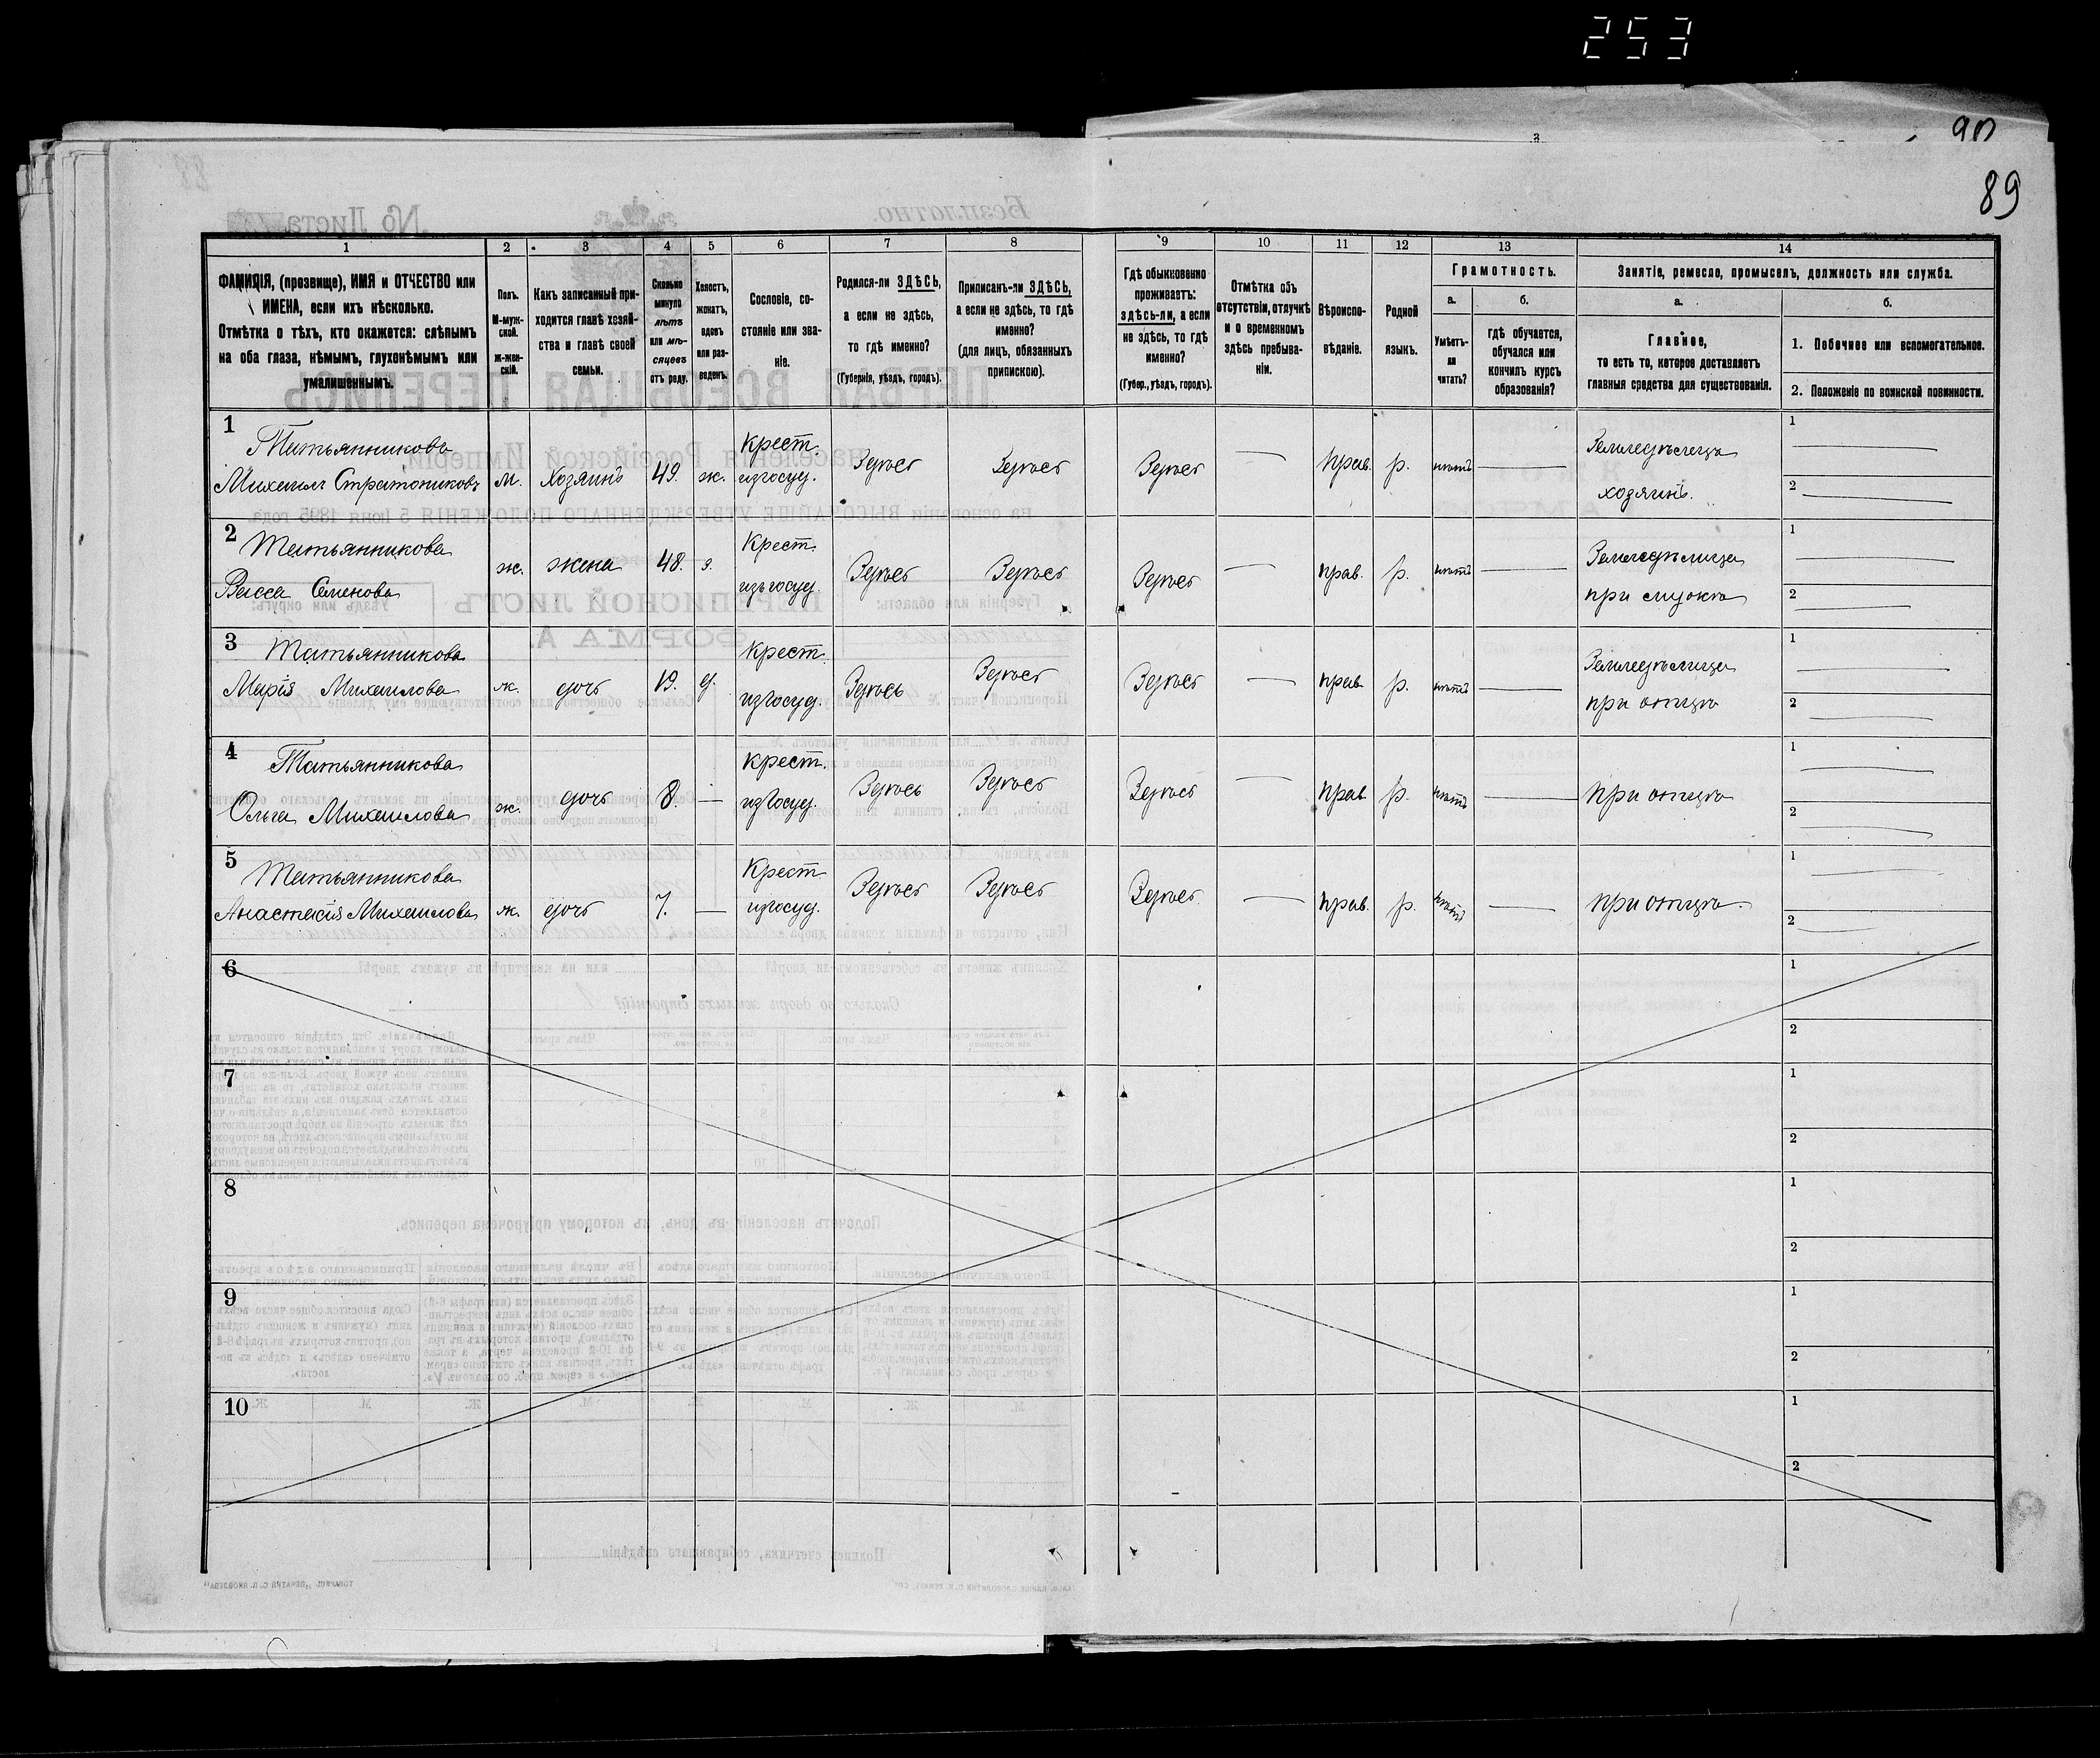 253
90
89
1
2
3
4
5
6
7
8
9
10
11
12
13
14
ФАМИЛІЯ, (прозвище), ИМЯ и ОТЧЕСТВО или
ИМЕНА, если ихъ нѣсколько.
Отмѣтка о тѣхъ, кто окажется: слѣпымъ
на оба глаза, нѣмымъ, глухонѣмымъ или
умалишеннымъ.
Полъ.
М-муж-
ской.
Ж-жен-
скій.
Какъ записанный при-
ходится главѣ хозяй-
ства и главѣ своей
семьи.
Сколько
минуло
лѣтъ
или мѣ-
сяцевъ
отъ роду.
Холостъ,
женатъ,
вдовъ
или раз-
веденъ.
Сословіе, со-
стояніе или зва-
ніе.
Родился-ли ЗДѢСЬ,
а если не здѣсь,
то гдѣ именно?
(Губернія, уѣздъ, городъ).
Приписанъ-ли ЗДѢСЬ,
а если не здѣсь, то гдѣ
именно?
(для лицъ, обязанныхъ
припискою).
Гдѣ обыкновенно
проживаетъ:
здѣсь-ли, а если
не здѣсь, то гдѣ
именно?
(Губер., уѣздъ, городъ).
Отмѣтка объ
отсутствіи, отлучкѣ
и о временномъ
здѣсь пребыва-
ніи.
Вѣроиспо-
вѣданіе.
Родной
языкъ.
Грамотность.
а.
Умѣетъ-
ли
читать?
б.
гдѣ обучается,
обучался или
кончилъ курсъ
образованія?
Занятіе, ремесло, промыселъ, должность или служба.
а.
Главное,
то есть то, которое доставляетъ
главныя средства для существованія.
б.
1. Побочное или вспомогательное.
2. Положеніе по воинской повинности.
1
Татьянникова
Михаилъ Стратониковъ
м.
Хозяинъ
49.
ж.
Крест.
изъ госуд.
Здѣсь
Здѣсь
Здѣсь
—
прав.
р.
нѣтъ
—
Земледѣлецъ
хозяинъ.
1 —
2 —
2
Татьянникова
Васса Семенова
ж.
жена
48.
з.
Крест.
изъ госуд.
Здѣсь
Здѣсь
Здѣсь
—
прав.
р.
нѣтъ
—
Земледѣлица
при мужѣ
1 —
2 —
3
Татьянникова
Марія Михаилова
ж.
дочь
19.
д.
Крест.
изъ госуд.
Здѣсь
Здѣсь
Здѣсь
—
прав.
р.
нѣтъ
—
Земледѣлица
при отцѣ
1 —
2 —
4
Татьянникова
Ольга Михаилова
ж.
дочь
8.
—
Крест.
изъ госуд.
Здѣсь
Здѣсь
Здѣсь
—
прав
р.
нѣтъ
—
при отцѣ
1 —
2 —
5
Татьянникова
Анастасія Михаилова
ж.
дочь
7.
—
Крест.
изъ госуд.
Здѣсь
Здѣсь
Здѣсь
—
прав.
р.
нѣтъ
—
при отцѣ.
1 —
2 —
6
1
2
7
1
2
8
1
2
9
1
2
10
1
2